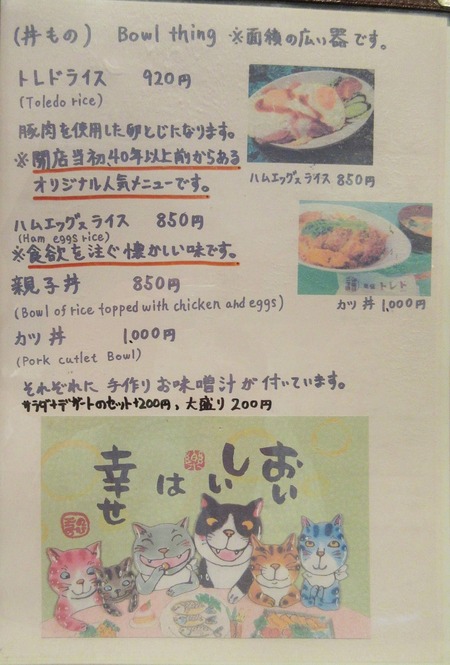 (丼もの) Bowl thing ※面積の広い器です。
トレドライス 920円
(Toledo rice)
豚肉を使用した卵とじになります。
※開店当初、40年以上前からある
オリジナル人気メニューです。
ハムエッグスライス 850円
ハムエッグスライス 850円
(Ham eggs rice)
※食欲を注ぐ懐かしい味です。
親子丼 850円
(Bowl of rice topped with chicken and eggs)
トレド
カツ丼 1,000円
カツ丼 1,000円
(Pork cutlet Bowl)
それぞれに手作りお味噌汁が付いています。
サラダ+デザートのセット+200円、大盛り200円
おいしいは幸せ
樂